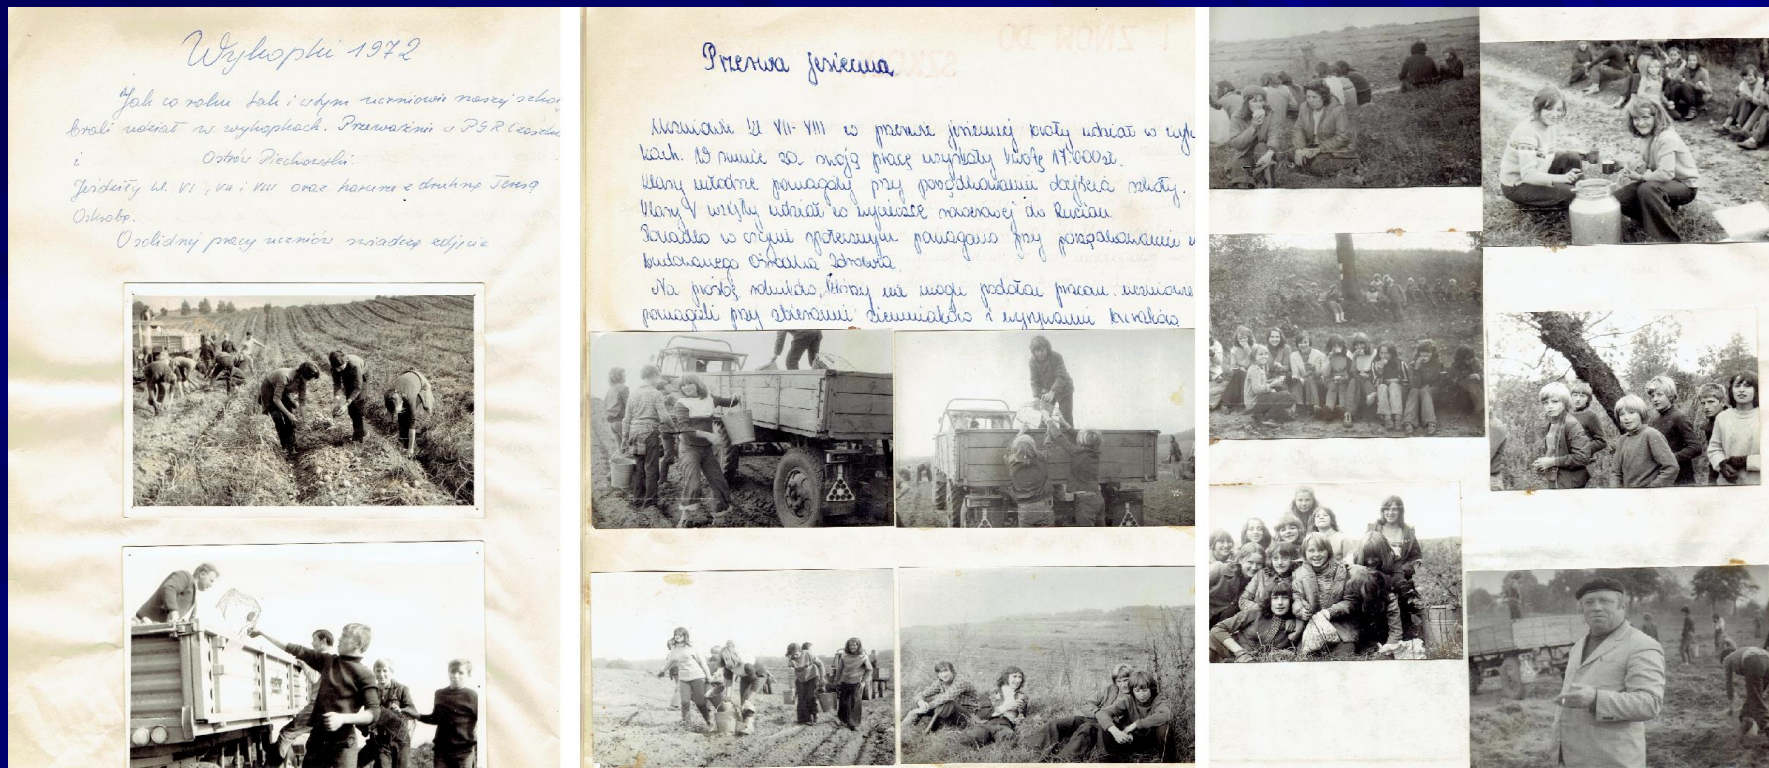 Wykopki 1972
Jak co roku tak i w tym uczniowie naszej szko
brali udział w wykopkach. Przeważnie w PGR
i Ostrów Piechowski.
Jeździły kl. VI, VII i VIII oraz harcerze z druhną Teresą
Osolidnej pracy uczniów świadczą zdjęcia
Przerwa jesienna
Uczniowie kl VII-VIII w przerwie jesiennej brały udział w wyk
kach. 19 sumie za swoją pracę uzyskały kwotę 17.000 zł.
Klasy młodsze pomagały przy porządkowaniu dojścia szkoły.
Klasy V wzięły udział w wycieczce do Rucian
w czynie społecznym pomagano przy porządkowaniu
budowanego Ośrodka Zdrowia.
Na prośbę rolników, którzy nie mogli podołać pracom, uczniowie
pomagali przy zbieraniu ziemniaków i wyrywaniu buraków
! ZNÓW DO